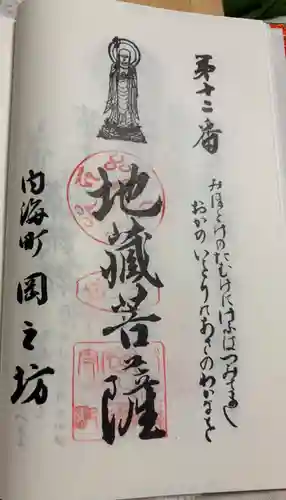 第十二番
みほとけのたむけにけふはつみましし
おかのいとりのあさのわかなを
地蔵菩薩
内海町 岡之坊